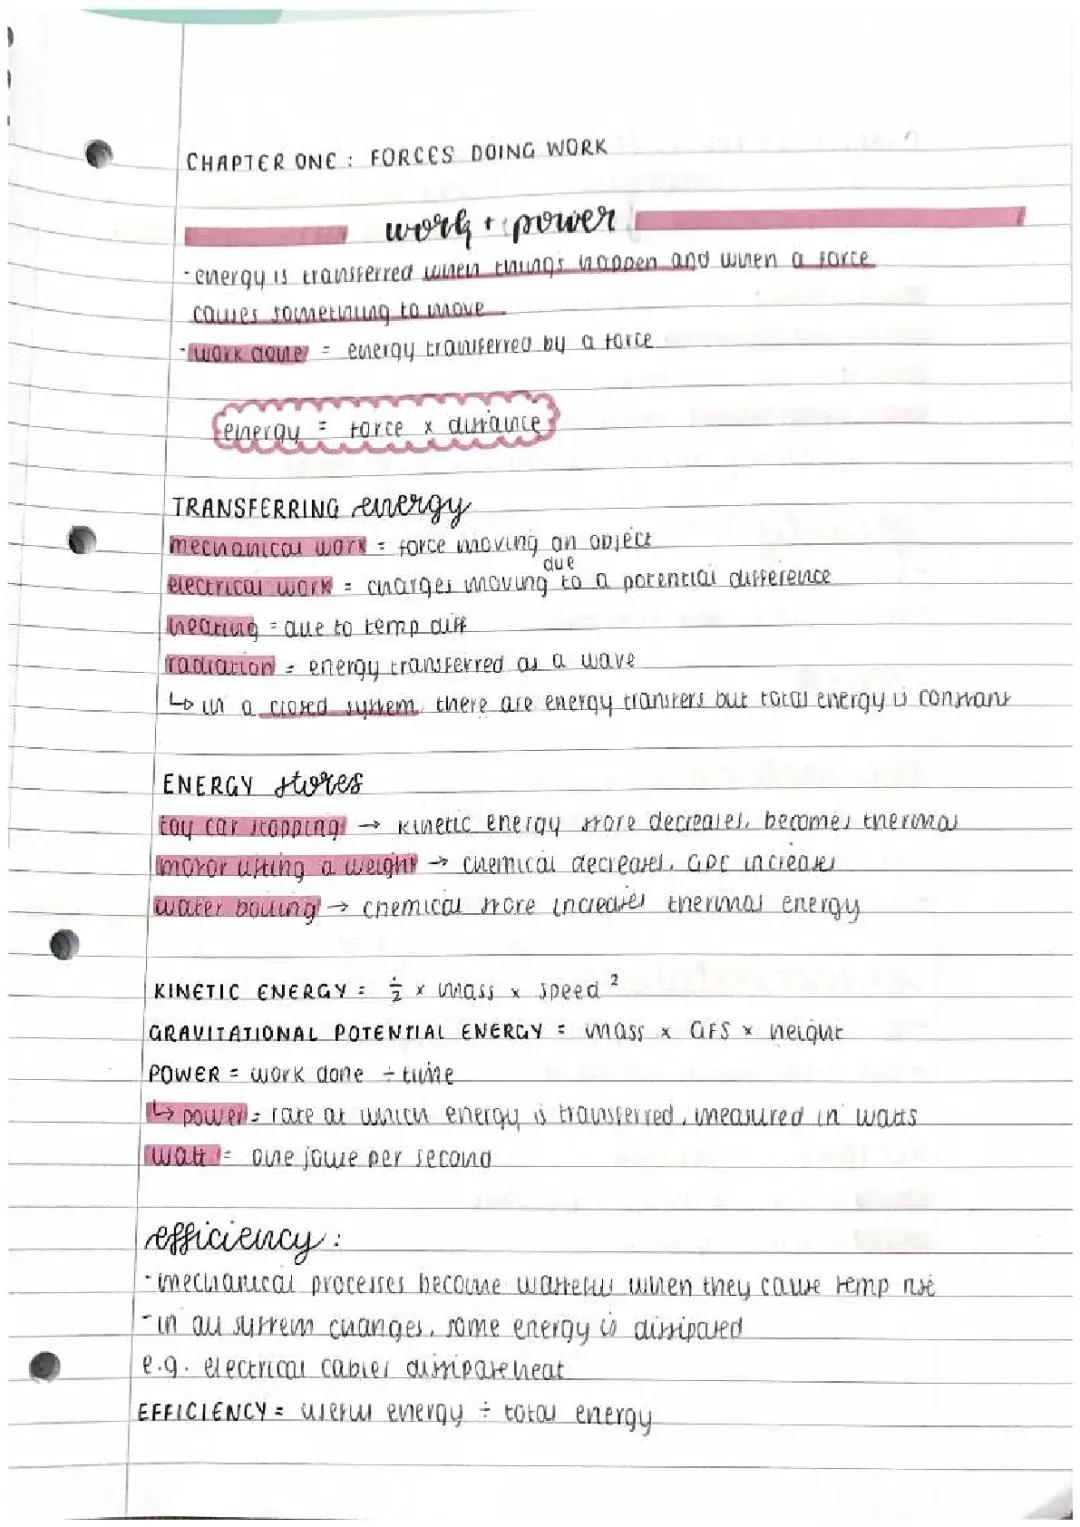 CHAPTER ONE: FORCES DOING WORK
work + power
- energy is transferred when things happen and when a force
causes something to move
- work done = energy transferred by a force
energy = force x distance
TRANSFERRING energy
mechanical work = force moving an object
due
electrical work = charges moving to a potential difference
heating = due to temp diff
radiation = energy transferred as a wave
↳ in a closed system, there are energy transfers but total energy is constant
ENERGY stores
toy car stopping → kinetic energy store decreases, becomes thermal
motor lifting a weight → chemical decreases, GPE increases
water boiling → chemical store increases thermal energy
KINETIC ENERGY = ½ x mass x speed ²
GRAVITATIONAL POTENTIAL ENERGY = mass x GFS x height
POWER = work done ÷ time
↳ power = rate at which energy is transferred, measured in watts
watt = one joule per second
efficiency:
- mechanical processes become wasteful when they cause temp rise
- in all system changes, some energy is dissipated
e.g. electrical cables dissipate heat
EFFICIENCY = useful energy ÷ total energy